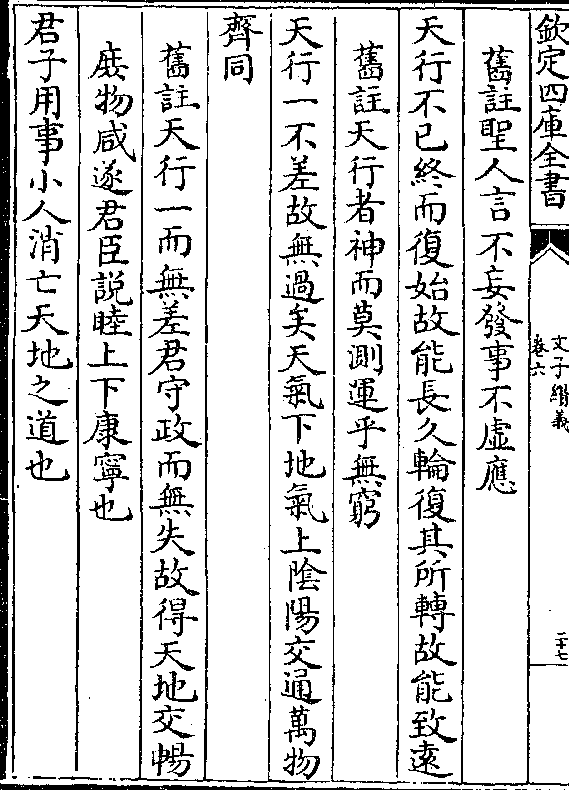 欽定四庫全書
文子纘義
卷六
二十七
舊註聖人言不妄發事不虛應
天行不已終而復始故能長久輪復其所轉故能致遠
舊註天行者神而莫測運乎無窮
天行一不差故無過矣天氣下地氣上陰陽交通萬物
齊同
舊註天行一而無差君守政而無失故得天地交暢
庶物咸遂君臣説睦上下康寧也
君子用事小人消亡天地之道也